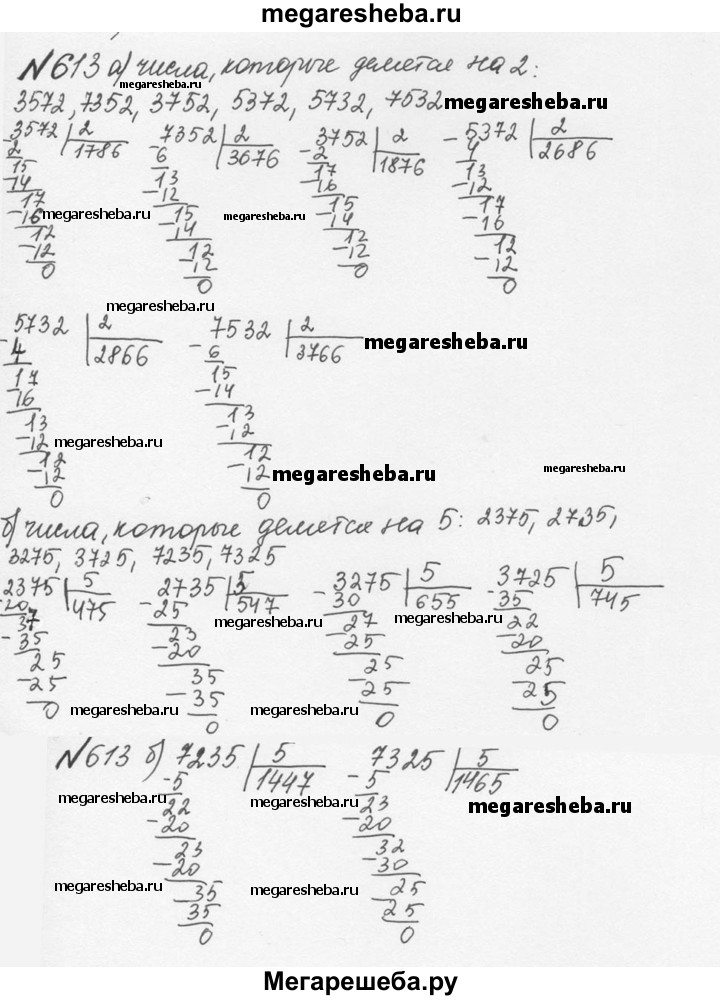 megaresheba.ru
№613 а) числа, которые делятся на 2:
megaresheba.ru
3572, 7352, 3752, 5372, 5732, 7532 megaresheba.ru
3572 | 2 7352 | 2 3752 | 2 5372 | 2
2 1786 6 3676 2 1876 4 2686
15 13 17 13
14 12 16 12
17 15 15 17
16 megaresheba.ru 14 megaresheba.ru 14 megaresheba.ru 16
12 12 12 12
12 12 12 12
0 0 0 0
megaresheba.ru
5732 | 2 7532 | 2
4 2866 6 3766 megaresheba.ru
17 15
16 14
13 13
12 megaresheba.ru 12
12 12
12 12 megaresheba.ru megaresheba.ru
0 0
б) числа, которые делятся на 5: 2375, 2735,
3275, 3725, 7235, 7325
2375 | 5 2735 | 5 3275 | 5 3725 | 5
20 475 25 547 30 655 35 745
37 23 megaresheba.ru 27 megaresheba.ru 22
35 20 25 20
25 35 25 25
25 35 25 25
0 megaresheba.ru 0 0 megaresheba.ru 0
№613 б) 7235 | 5 7325 | 5
5 1447 5 1465
megaresheba.ru 22 megaresheba.ru 23 megaresheba.ru
20 20
23 32
20 30
megaresheba.ru 35 megaresheba.ru 25 megaresheba.ru
35 25
0 0
Мегарешеба.ру